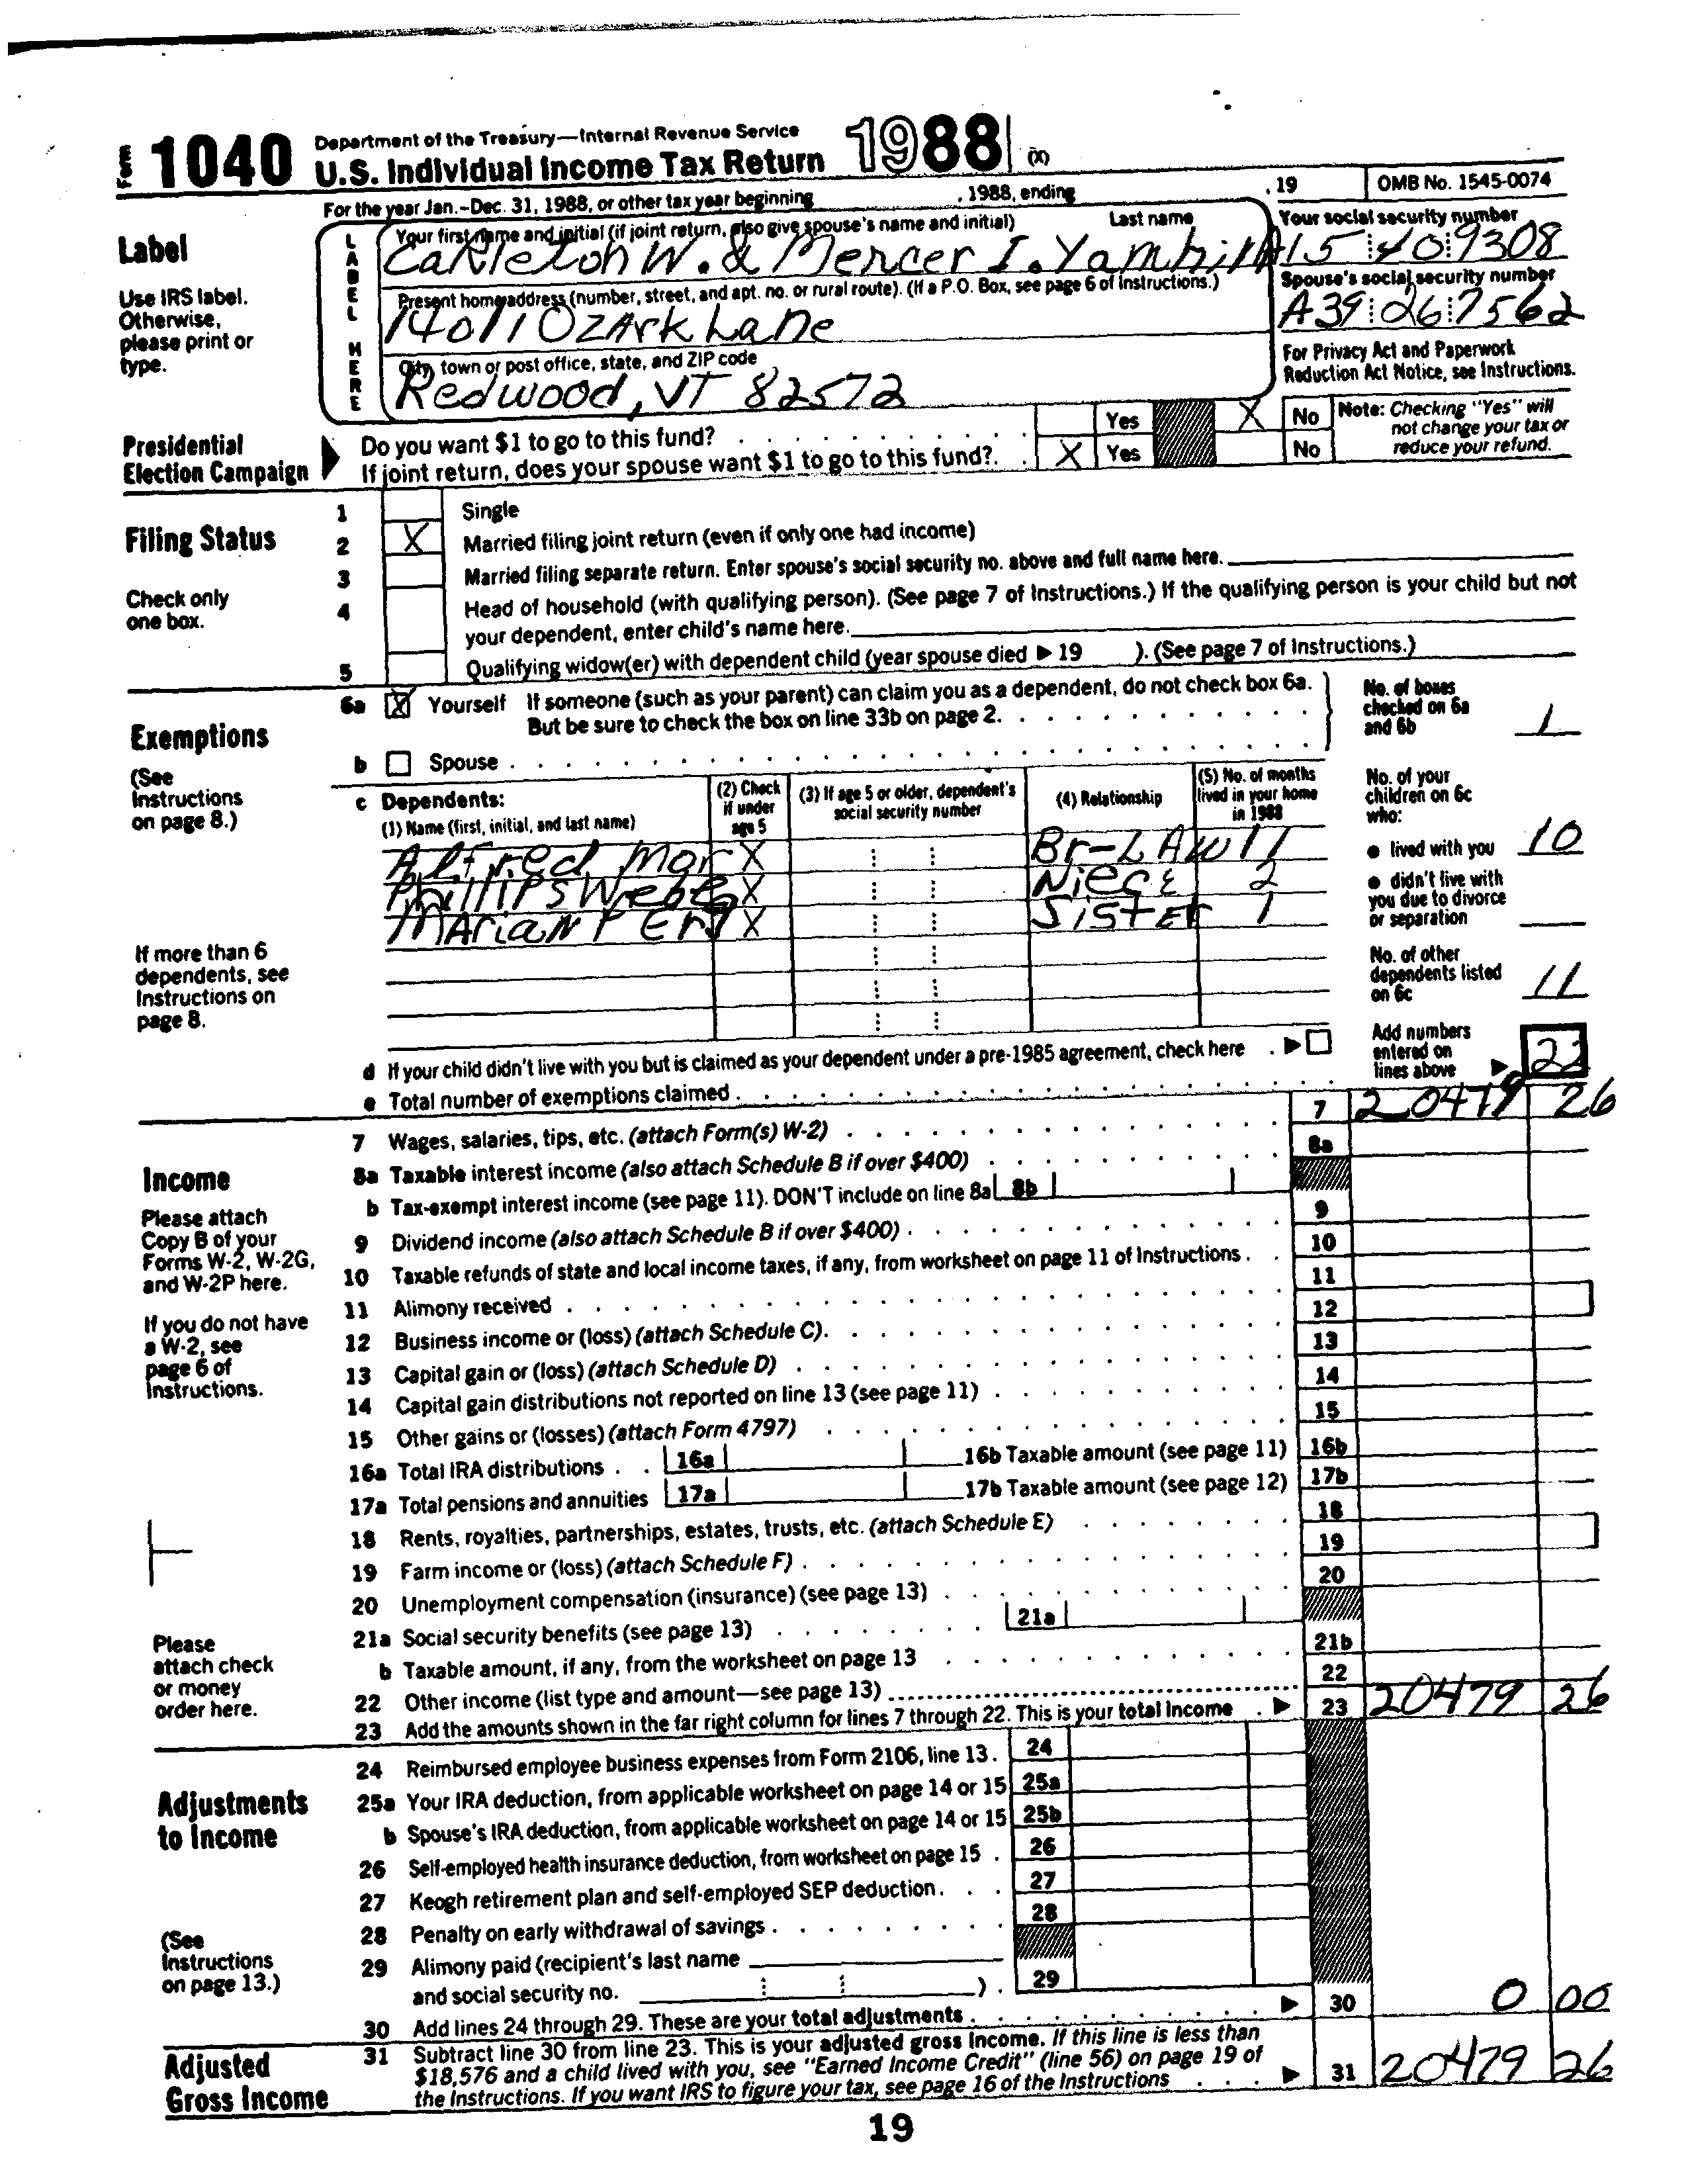 Form 1040 Department of the Treasury—Internal Revenue Service
U.S. Individual Income Tax Return 1988 (X)
For the year Jan.-Dec. 31, 1988, or other tax year beginning , 1988, ending , 19 OMB No. 1545-0074
Label
Use IRS label. Otherwise, please print or type.
LABEL HERE
Your first name and initial (if joint return, also give spouse's name and initial) Last name
Carleton W. & Mercer I. Yamhill
Your social security number
A15 40 9308
Present home address (number, street, and apt. no. or rural route). (If a P.O. Box, see page 6 of Instructions.)
14011 Ozark Lane
Spouse's social security number
A39 26 7562
City, town or post office, state, and ZIP code
Redwood, VT 82572
For Privacy Act and Paperwork Reduction Act Notice, see Instructions.
Presidential Election Campaign
Do you want $1 to go to this fund? Yes X No
If joint return, does your spouse want $1 to go to this fund? X Yes No
Note: Checking "Yes" will not change your tax or reduce your refund.
Filing Status
Check only one box.
1 Single
2 X Married filing joint return (even if only one had income)
3 Married filing separate return. Enter spouse's social security no. above and full name here.
4 Head of household (with qualifying person). (See page 7 of Instructions.) If the qualifying person is your child but not
your dependent, enter child's name here.
5 Qualifying widow(er) with dependent child (year spouse died ▶ 19 ). (See page 7 of Instructions.)
Exemptions
(See Instructions on page 8.)
6a X Yourself If someone (such as your parent) can claim you as a dependent, do not check box 6a.
But be sure to check the box on line 33b on page 2.
b Spouse
No. of boxes checked on 6a and 6b 1
c Dependents:
(1) Name (first, initial, and last name) (2) Check if under age 5 (3) If age 5 or older, dependent's social security number (4) Relationship (5) No. of months lived in your home in 1988
Alfred Mar X Br-LAW 11
Phillips Webe X Niece 2
Marian Pery X Sister 1
If more than 6 dependents, see Instructions on page 8.
No. of your children on 6c who:
● lived with you 10
● didn't live with you due to divorce or separation
No. of other dependents listed on 6c 11
d If your child didn't live with you but is claimed as your dependent under a pre-1985 agreement, check here ▶
e Total number of exemptions claimed
Add numbers entered on lines above ▶ 22
Income
Please attach Copy B of your Forms W-2, W-2G, and W-2P here.
If you do not have a W-2, see page 6 of Instructions.
7 Wages, salaries, tips, etc. (attach Form(s) W-2) 7 20479 26
8a Taxable interest income (also attach Schedule B if over $400) 8a
b Tax-exempt interest income (see page 11). DON'T include on line 8a 8b
9 Dividend income (also attach Schedule B if over $400) 9
10 Taxable refunds of state and local income taxes, if any, from worksheet on page 11 of Instructions 10
11 Alimony received 11
12 Business income or (loss) (attach Schedule C) 12
13 Capital gain or (loss) (attach Schedule D) 13
14 Capital gain distributions not reported on line 13 (see page 11) 14
15 Other gains or (losses) (attach Form 4797) 15
16a Total IRA distributions 16a 16b Taxable amount (see page 11) 16b
17a Total pensions and annuities 17a 17b Taxable amount (see page 12) 17b
18 Rents, royalties, partnerships, estates, trusts, etc. (attach Schedule E) 18
19 Farm income or (loss) (attach Schedule F) 19
20 Unemployment compensation (insurance) (see page 13) 20
21a Social security benefits (see page 13) 21a
b Taxable amount, if any, from the worksheet on page 13 21b
22 Other income (list type and amount—see page 13) 22
23 Add the amounts shown in the far right column for lines 7 through 22. This is your total income ▶ 23 20479 26
Please attach check or money order here.
Adjustments to Income
(See Instructions on page 13.)
24 Reimbursed employee business expenses from Form 2106, line 13. 24
25a Your IRA deduction, from applicable worksheet on page 14 or 15 25a
b Spouse's IRA deduction, from applicable worksheet on page 14 or 15 25b
26 Self-employed health insurance deduction, from worksheet on page 15 26
27 Keogh retirement plan and self-employed SEP deduction 27
28 Penalty on early withdrawal of savings 28
29 Alimony paid (recipient's last name
and social security no. ) 29
30 Add lines 24 through 29. These are your total adjustments ▶ 30 0 00
Adjusted Gross Income
31 Subtract line 30 from line 23. This is your adjusted gross income. If this line is less than
$18,576 and a child lived with you, see "Earned Income Credit" (line 56) on page 19 of
the Instructions. If you want IRS to figure your tax, see page 16 of the Instructions ▶ 31 20479 26
19